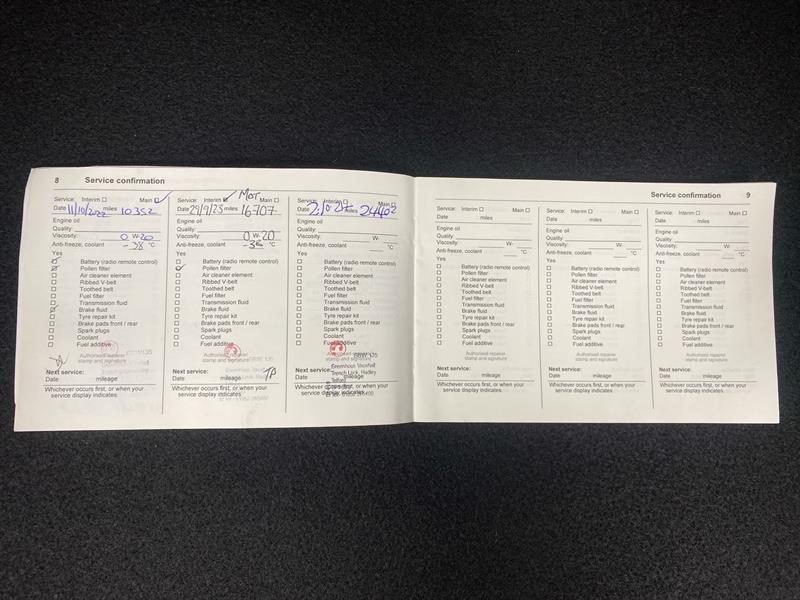 8 Service confirmation
Service: Interim Main
Date 11/10/2022 miles 10352
Engine oil
Quality:
Viscosity: 0 W-20
Anti-freeze, coolant -38 °C
Yes
Battery (radio remote control)
Pollen filter
Air cleaner element
Ribbed V-belt
Toothed belt
Fuel filter
Transmission fluid
Brake fluid
Tyre repair kit
Brake pads front / rear
Spark plugs
Coolant
Fuel additive
Authorised repairer
stamp and signature
Next service:
Date mileage
Whichever occurs first, or when your
service display indicates.
MOT
Service: Interim Main
Date 29/9/23 miles 16707
Engine oil
Quality:
Viscosity: 0 W-20
Anti-freeze, coolant °C
Yes
Battery (radio remote control)
Pollen filter
Air cleaner element
Ribbed V-belt
Toothed belt
Fuel filter
Transmission fluid
Brake fluid
Tyre repair kit
Brake pads front / rear
Spark plugs
Coolant
Fuel additive
Authorised repairer
stamp and signature
Next service:
Date mileage
Whichever occurs first, or when your
service display indicates.
Service: Interim Main
Date miles 24402
Engine oil
Quality:
Viscosity: W-
Anti-freeze, coolant °C
Yes
Battery (radio remote control)
Pollen filter
Air cleaner element
Ribbed V-belt
Toothed belt
Fuel filter
Transmission fluid
Brake fluid
Tyre repair kit
Brake pads front / rear
Spark plugs
Coolant
Fuel additive
stamp and signature
Greenhous Vauxhall
Trench Lock, Hadley
Telford
Next service:
Date mileage
Whichever occurs first, or when your
service display indicates.
Service confirmation 9
Service: Interim Main
Date miles
Engine oil
Quality:
Viscosity: W-
Anti-freeze, coolant °C
Yes
Battery (radio remote control)
Pollen filter
Air cleaner element
Ribbed V-belt
Toothed belt
Fuel filter
Transmission fluid
Brake fluid
Tyre repair kit
Brake pads front / rear
Spark plugs
Coolant
Fuel additive
Authorised repairer
stamp and signature
Next service:
Date mileage
Whichever occurs first, or when your
service display indicates.
Service: Interim Main
Date miles
Engine oil
Quality:
Viscosity: W-
Anti-freeze, coolant °C
Yes
Battery (radio remote control)
Pollen filter
Air cleaner element
Ribbed V-belt
Toothed belt
Fuel filter
Transmission fluid
Brake fluid
Tyre repair kit
Brake pads front / rear
Spark plugs
Coolant
Fuel additive
Authorised repairer
stamp and signature
Next service:
Date mileage
Whichever occurs first, or when your
service display indicates.
Service: Interim Main
Date miles
Engine oil
Quality:
Viscosity: W-
Anti-freeze, coolant °C
Yes
Battery (radio remote control)
Pollen filter
Air cleaner element
Ribbed V-belt
Toothed belt
Fuel filter
Transmission fluid
Brake fluid
Tyre repair kit
Brake pads front / rear
Spark plugs
Coolant
Fuel additive
Authorised repairer
stamp and signature
Next service:
Date mileage
Whichever occurs first, or when your
service display indicates.